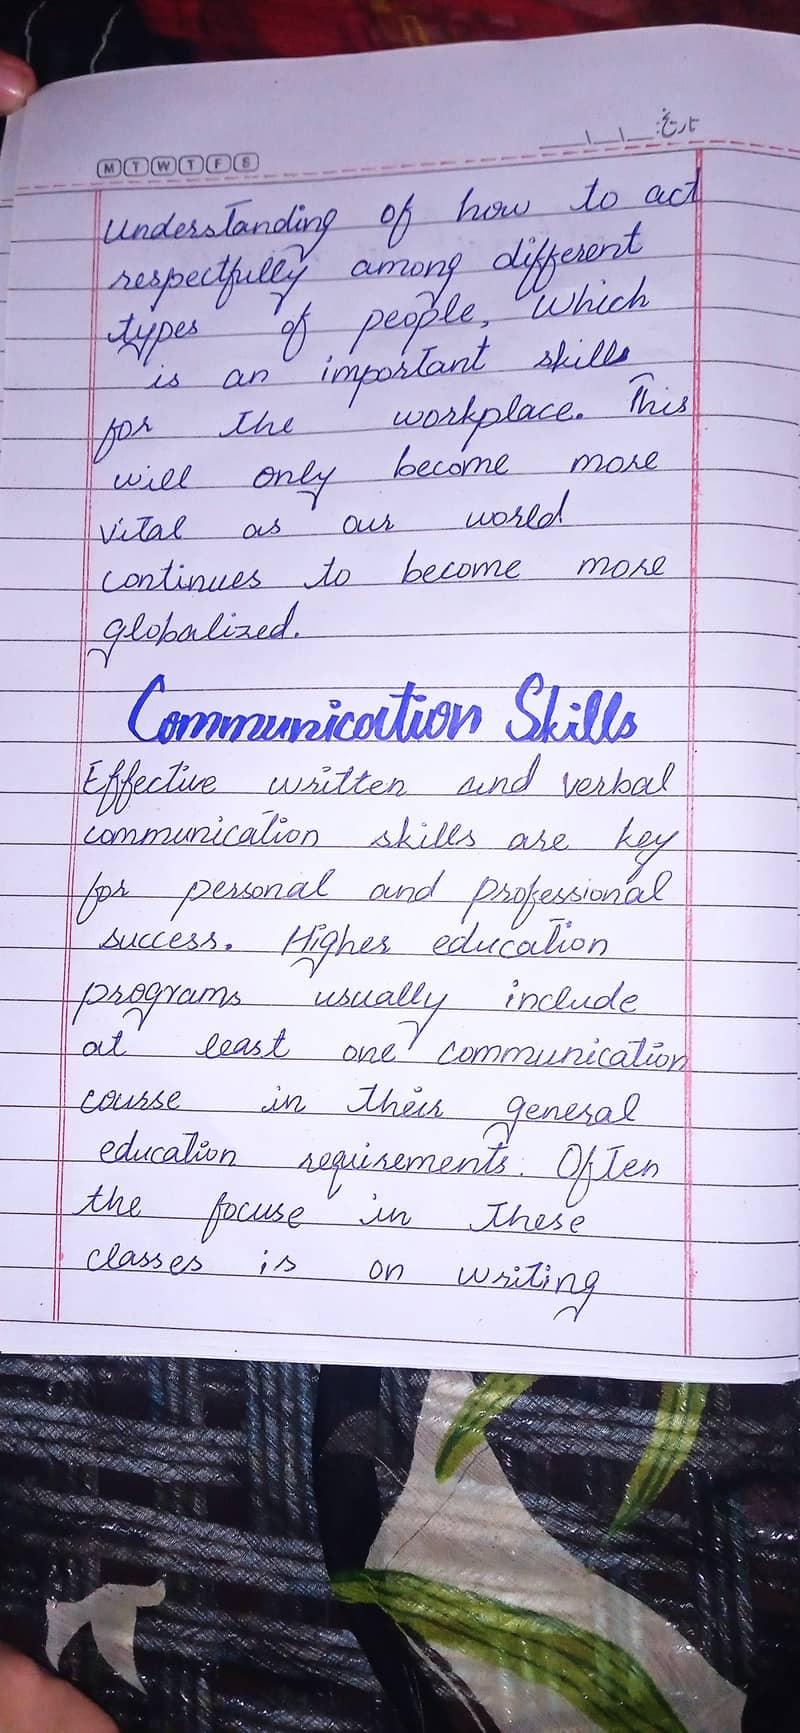 M T W T F S
تاریخ: __\__\__
understanding of how to act
respectfully among different
types of people, which
is an important skills
for the workplace. This
will only become more
vital as our world
continues to become more
globalized.
Communication Skills
Effective written and verbal
communication skills are key
for personal and professional
success. Higher education
programs usually include
at least one communication
course in their general
education requirements. Often
the focuse in these
classes is on writing